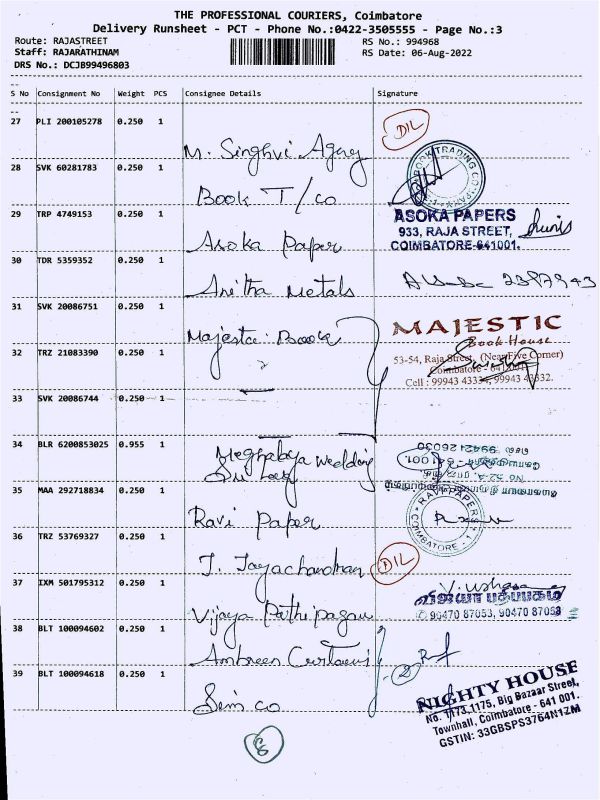 THE PROFESSIONAL COURIERS, Coimbatore
Delivery Runsheet - PCT - Phone No.:0422-3505555 - Page No.:3
Route: RAJASTREET
RS No.: 994968
Staff: RAJARATHINAM
RS Date: 06-Aug-2022
DRS No.: DCJB99496803
S No Consignment No Weight PCS Consignee Details Signature
27 PLI 200105278 0.250 1 DIL
M. Singhvi
28 SVK 60281783 0.250 1
Book T/co
BOOK TRADING CO
29 TRP 4749153 0.250 1
ASOKA PAPERS
933, RAJA STREET,
COIMBATORE-641001.
Asoka Paper
30 TDR 5359352 0.250 1
Anitha Metals
31 SVK 20086751 0.250 1
Majestic Book
MAJESTIC
Book House
53-54, Raja Street, (Near Five Corner)
Coimbatore - 641 001
Cell : 99943 43334, 99943 43332.
32 TRZ 21083390 0.250 1
33 SVK 20086744 0.250 1
34 BLR 6200853025 0.955 1
Wedding
99421 26030
35 MAA 292718834 0.250 1
Ravi Paper
RAVI PAPER
COIMBATORE - 1
36 TRZ 53769327 0.250 1
J. Jayachandran DIL
37 IXM 501795312 0.250 1
Vijaya Pathipagam
விஜயா பதிப்பகம்
90470 87053, 90470 87058
38 BLT 100094602 0.250 1
Ambreen
2
39 BLT 100094618 0.250 1
Sim co
NIGHTY HOUSE
No. 1173,1175, Big Bazaar Street,
Townhall, Coimbatore - 641 001.
GSTIN: 33GBSPS3764N1ZM